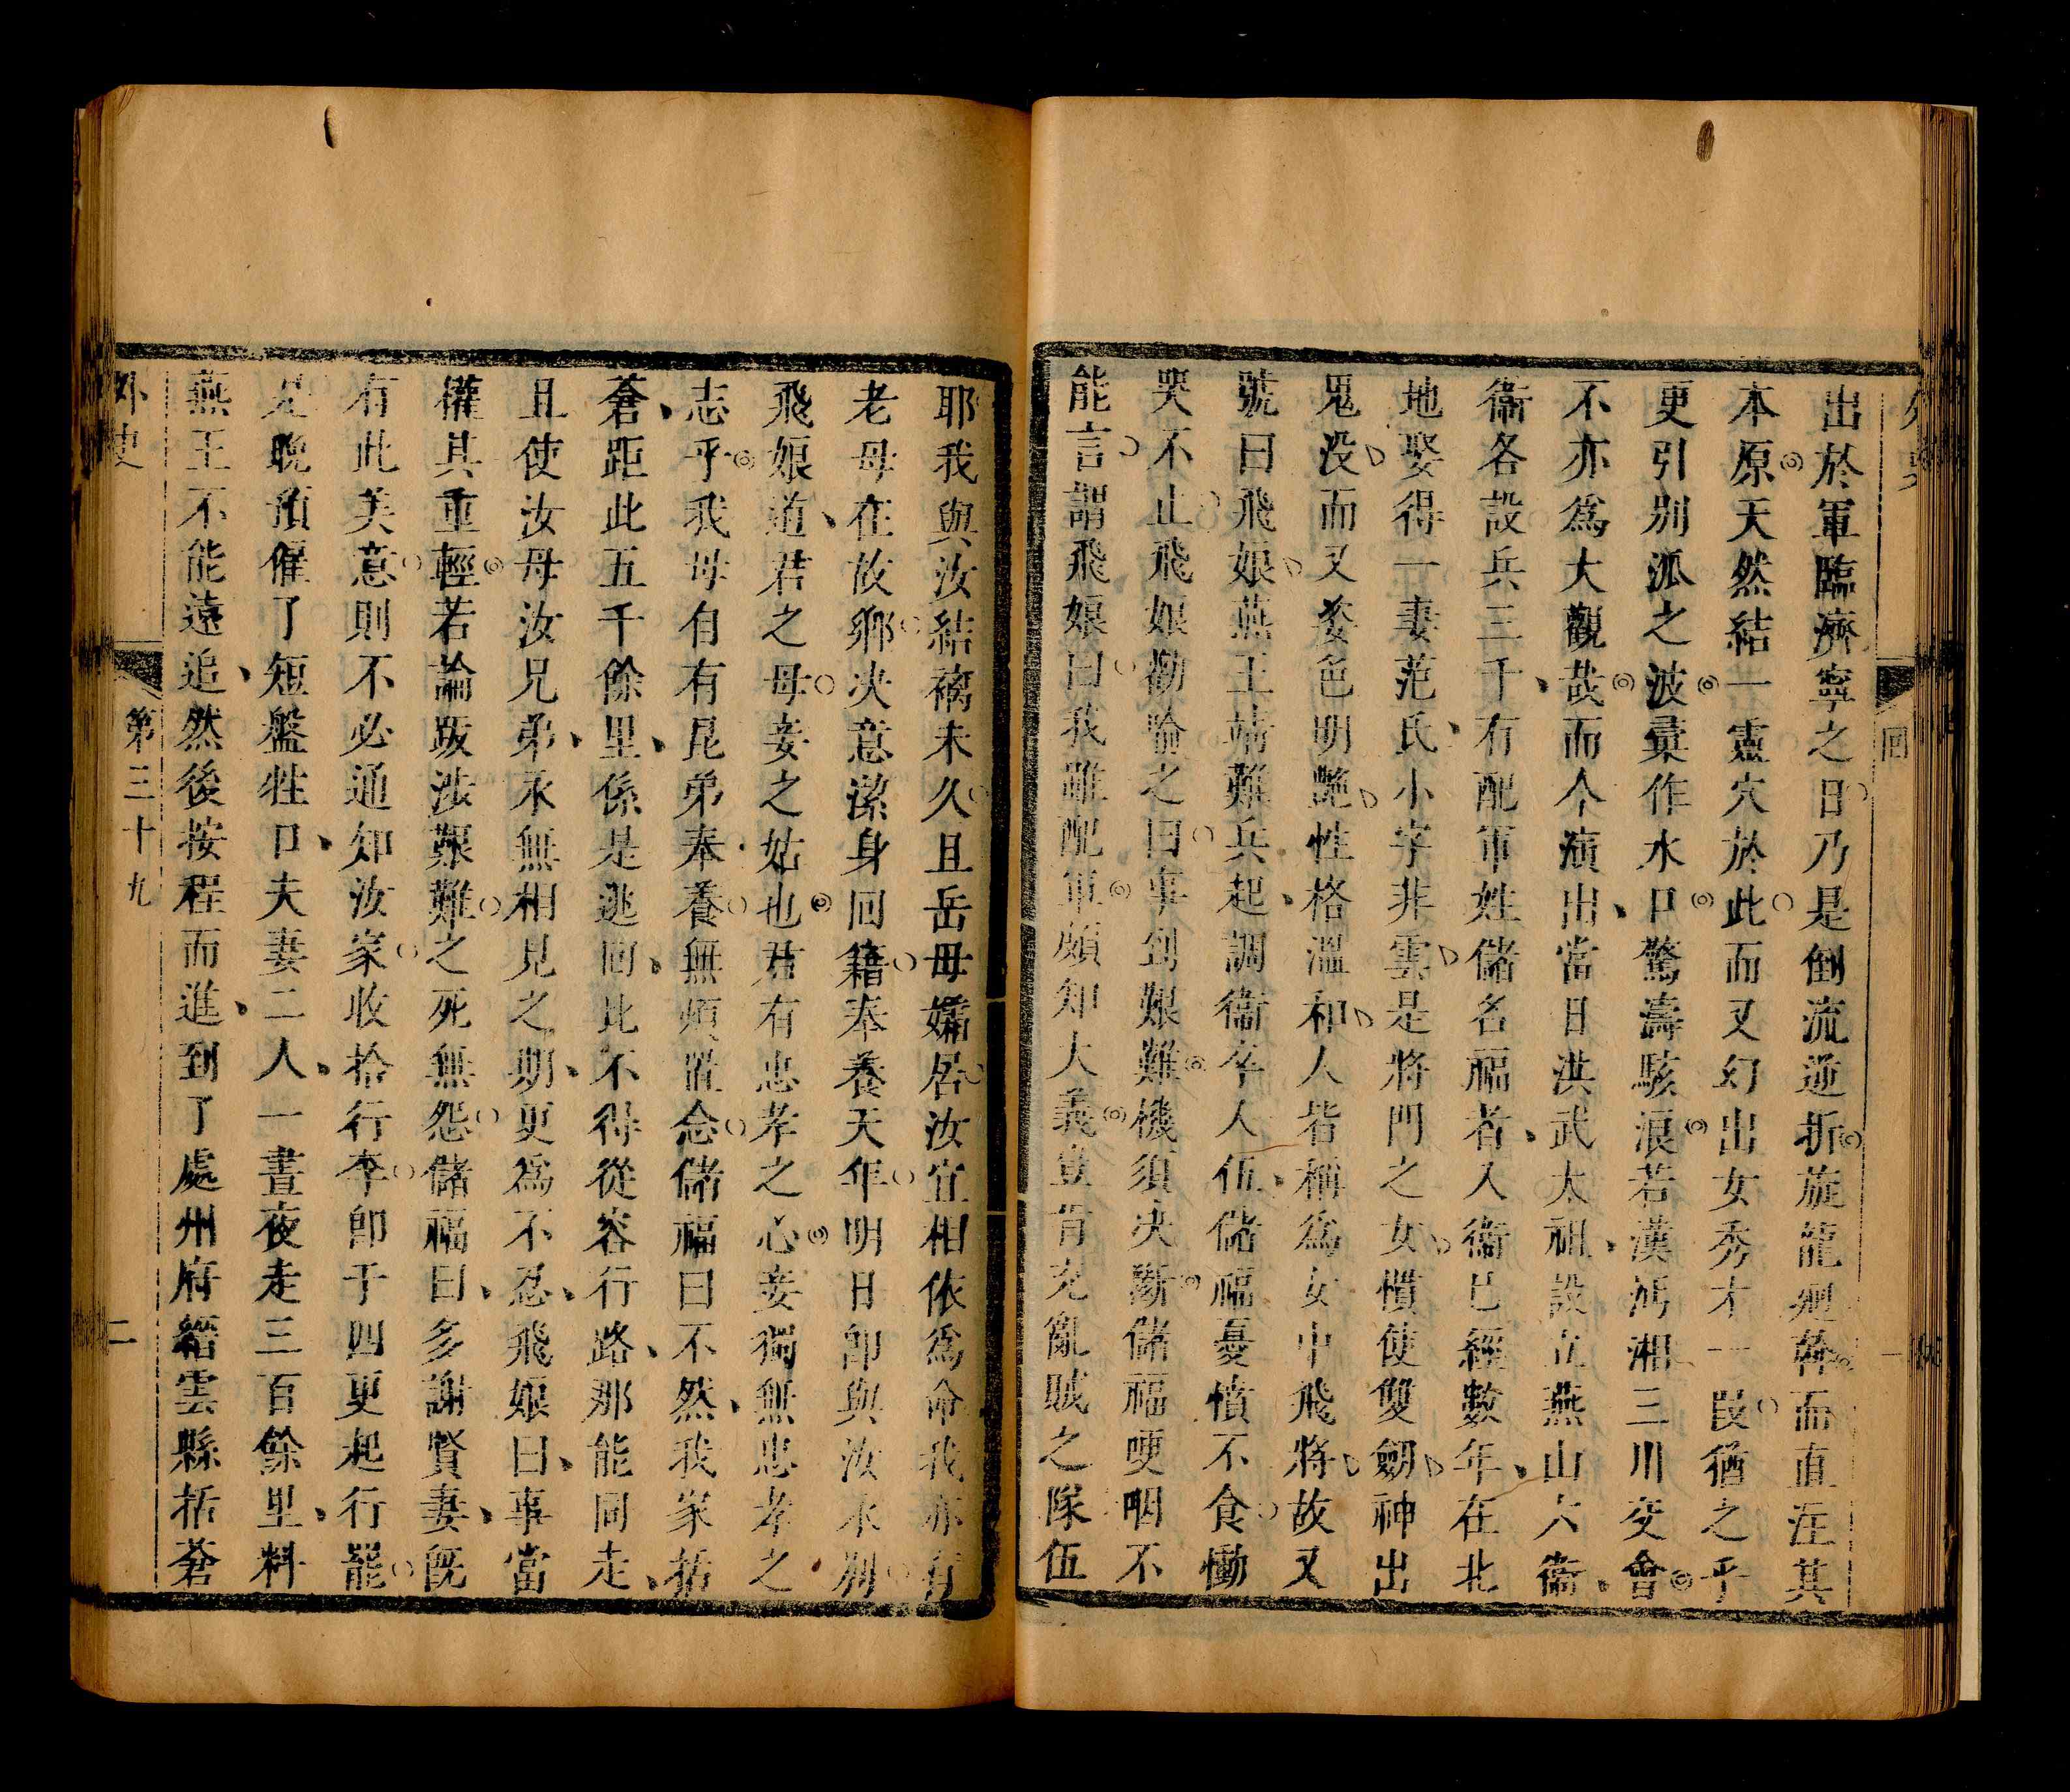 出於軍臨濟寧之日乃是倒流逆折旋龍廻斡而直注其
本原天然結一靈穴於此而又幻出女秀才一段猶之乎
更引別派之波彙作水口驚濤駭浪若漢沔湘三川交會
不亦爲大觀哉而今演出當日洪武太祖設立燕山六衞
衞各設兵三千有配軍姓儲名福者入衞已經數年在北
地娶得一妻范氏小字非雲是將門之女慣使雙劒神出
鬼没而又姿色明艷性格溫和人皆稱爲女中飛將故又
號曰飛娘燕王靖難兵起調衞卒人伍儲福憂憤不食慟
哭不止飛娘勸喻之曰事到艱難機須決斷儲福哽咽不
能言謂飛娘曰我雖配軍頗知大義豈肯充亂賊之隊伍
耶我與汝結褵未久且岳母孀居汝宜相依爲命我亦有
老母在故鄉决意潔身回籍奉養天年明日卽與汝永別
飛娘道君之母妾之姑也君有忠孝之心妾獨無忠孝之
志乎我母自有昆弟奉養無煩罣念儲福曰不然我家括
蒼距此五千餘里係是逃回比不得從容行路那能同走
且使汝母汝兄弟永無相見之期更爲不忍飛娘曰事當
權其重輕若論跋涉艱難之死無怨儲福曰多謝賢妻旣
有此美意則不必通知汝家收拾行李卽于四更起行罷
是晚預僱了短盤牲口夫妻二人一晝夜走三百餘里料
燕王不能遠追然後按程而進到了處州府縉雲縣括蒼
外史
第三十九
二